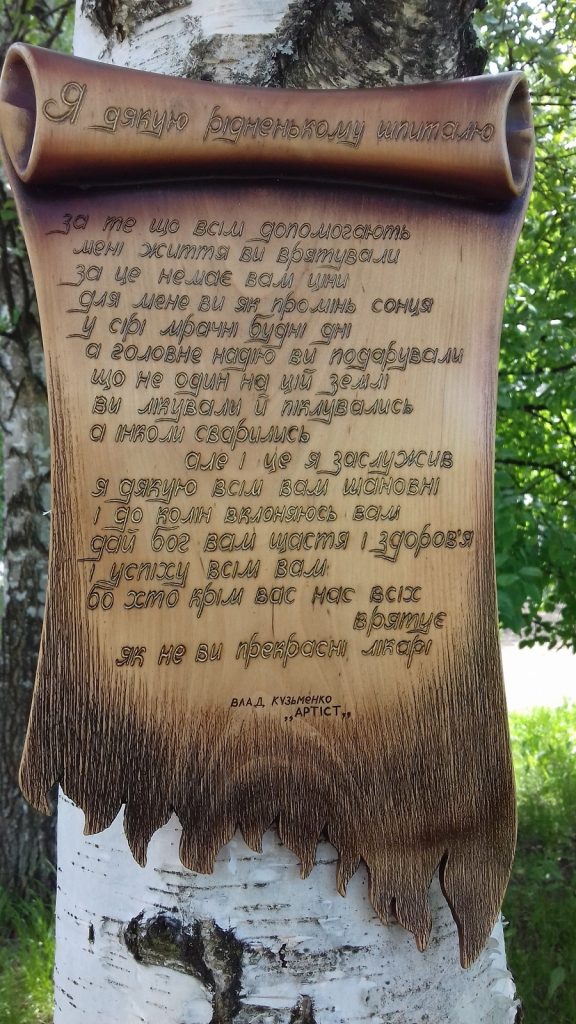 Я дякую рідненькому шпиталю
за те що всім допомогають
мені життя ви врятували
за це немає вам ціни
для мене ви як промінь сонця
у сірі мрачні будні дні
а головне надію ви подарували
що не один на цій землі
ви лікували й піклувались
а інколи сварились
але і це я заслужив
я дякую всім вам шановні
і до колін вклоняюсь вам
дай бог вам щастя і здоров'я
і успіху всім вам
бо хто крім вас нас всіх
врятує
як не ви прекрасні лікарі
ВЛАД КУЗЬМЕНКО
„АРТІСТ„